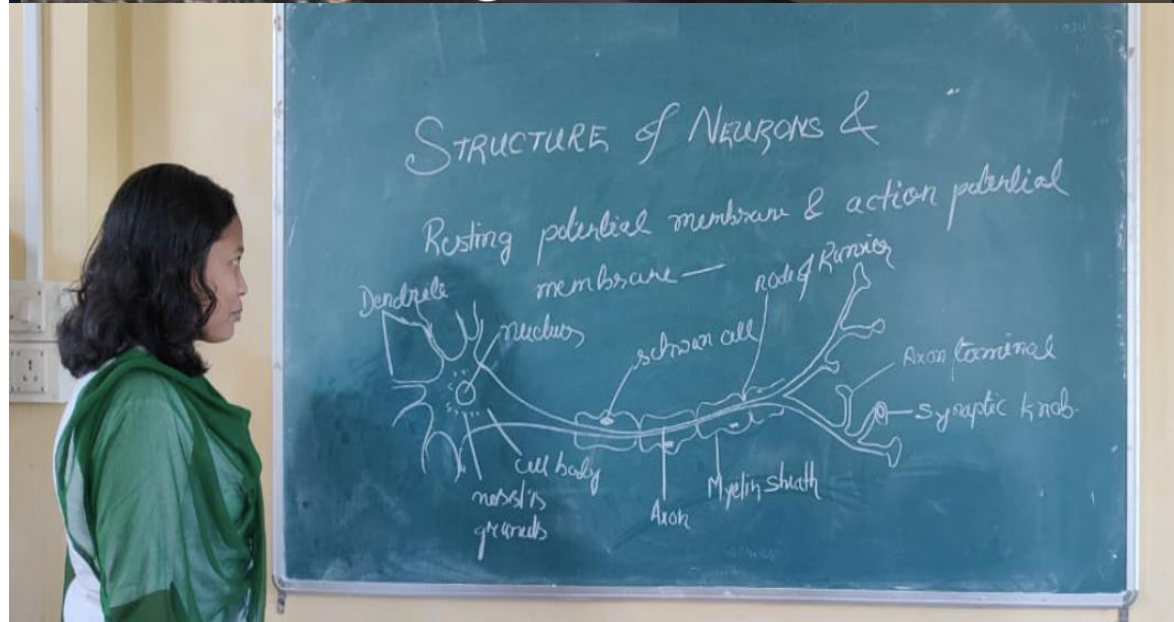 STRUCTURE of NEURONS &
Resting potential membrane & action potential
membrane —
node of Ranvier
Dendrite
nucleus
schwan cell
Axon terminal
Synaptic knob
cell body
nessl's
granuls
Axon
Myelin sheath